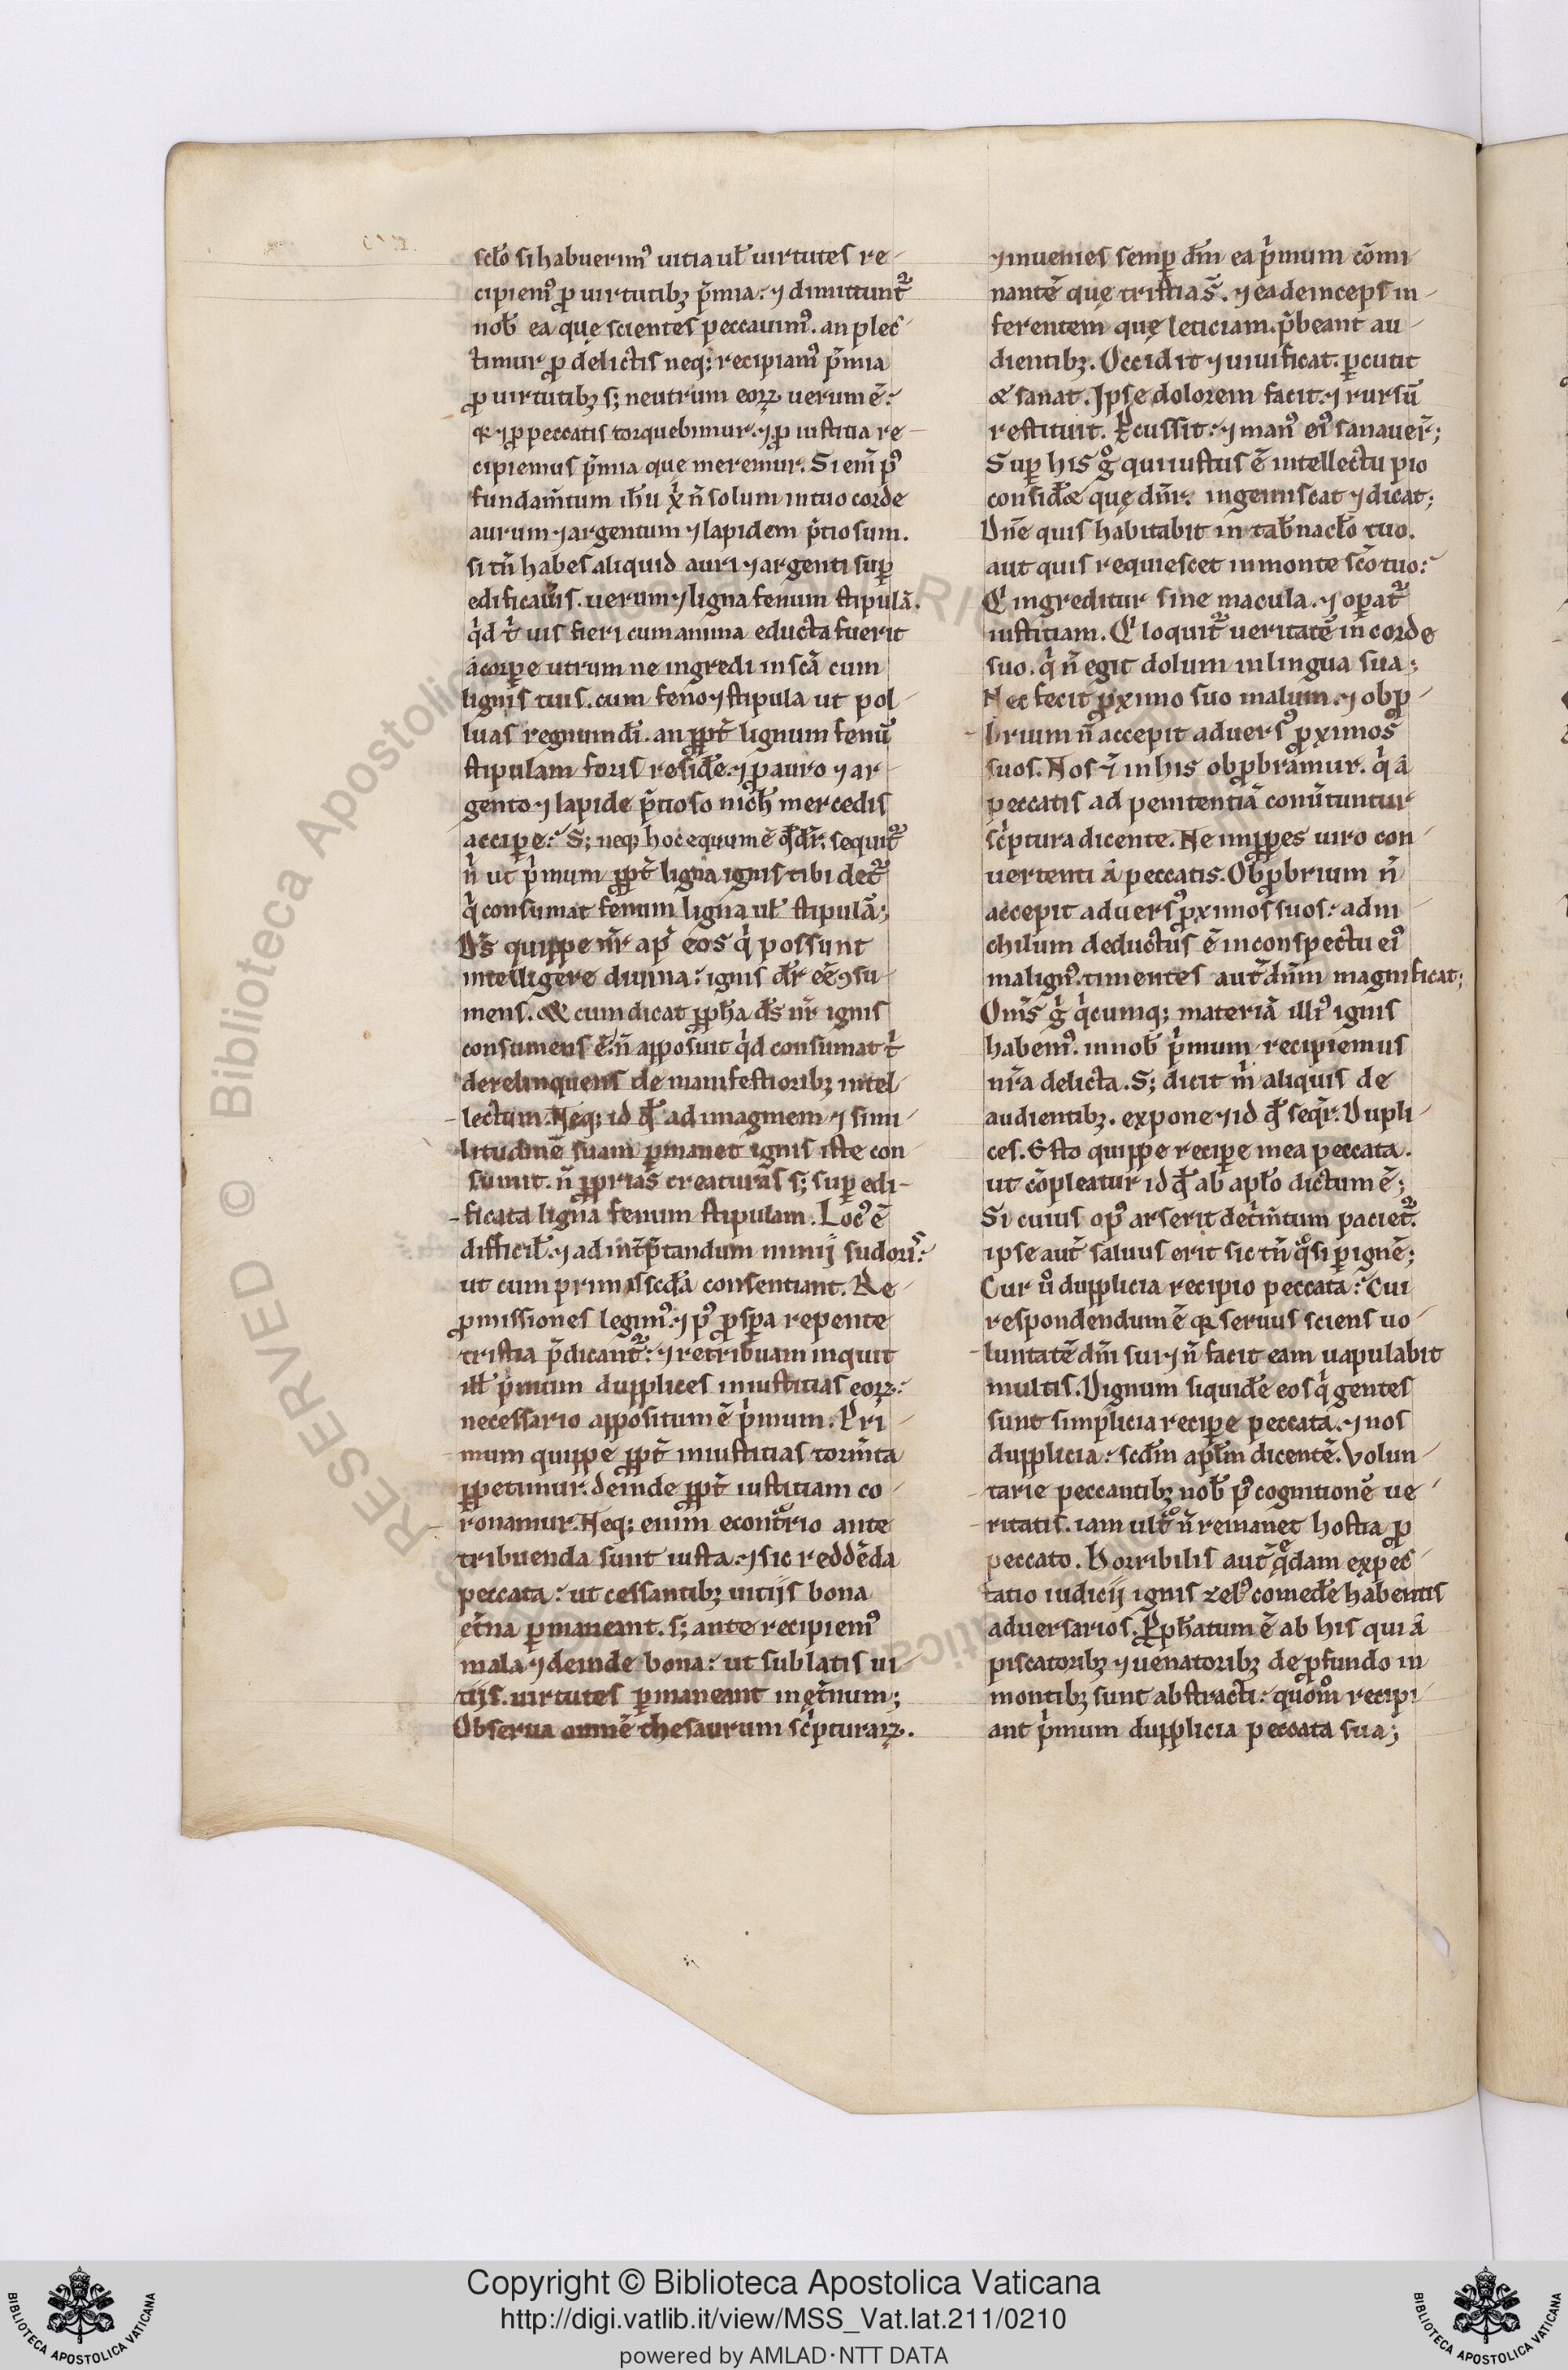 scło si habuerimꝰ uitia uł uirtutes re-
cipiemꝰ ꝓ uirtutibꝫ p̄mia: ⁊ dimittunt᷑
nob̄ ea quę scientes peccauimꝰ. an plec-
timur ꝓ delictis neqꝫ recipiamꝰ p̄mia
ꝓ uirtutibꝫ sꝫ neutrum eoꝝ uerum ē:
⁊ ꝓ peccatis torquebimur. ⁊ ꝓ iustitia re-
cipiemus p̄mia que meremur. Si eni᷑ pꝰ
fundam̄tum ih̄u xp̄i n̄ solum in tuo corde
aurum ⁊ argentum ⁊ lapidem p̄tiosum.
si tn̄ habes aliquid auri ⁊ argenti suꝑ
edificaueris. uerum ⁊ ligna fenum stipulā.
qͥd tͥ uis fieri cum anima educta fuerit
a corꝑe utrum ne ingredi in scā cum
lignis tuis. cum feno ⁊ stipula ut pol-
luas regnum dī. an ꝓpt̄ lignum fenū
stipulam foris resid̄e. ⁊ ꝓ auro ⁊ ar-
gento ⁊ lapide p̄tioso nich̄ mercedis
acciꝑe: Sꝫ neqꝫ hoc equum ē qd̄ dr̄. sequit᷑
n̄ ut pͥmum ꝓpt̄ ligna ignis tibi det᷑
qͥ consumat fenum ligna uł stipulā;
Ds̄ quippe nr̄ ap᷑ eos qͥ possunt
intelligere diuina: ignis dr̄ eē ꝯsu-
mens. & cum dicat ꝓph̄a ds̄ nr̄ ignis
consumens ē. n̄ apposuit qͥd consumat tͥ
derelinquens de manifestioribꝫ intel-
lectum. Neqꝫ id qd̄ ad imaginem ⁊ simi-
litudinē suam ꝑmanet ignis iste con
sumit. n̄ ꝓprias creaturas sꝫ suꝑ edi-
ficata ligna fenum stipulam. Locꝰ ē
difficił. ⁊ ad int̄p̄tandum nimij sudoris:
ut cum primis scd̄a consentiant. Re-
ꝓmissiones legimꝰ. ⁊ pꝰ ꝓsꝑa repente
tristia p̄dicant᷑: ⁊ retribuam inquit
ill̄ pͥmum dupplices iniustitias eoꝝ:
necessario appositum ē pͥmum. Pri-
mum quippe ꝓpt̄ iniustitias torm̄ta
ꝑpetimur. deinde ꝓpt̄ iustitiam co-
ronamur. Neqꝫ enim econtͦrio ante
tribuenda sunt iusta. ⁊ sic reddēda
peccata: ut cessantibꝫ uitijs bona
et̄na ꝑmaneant. sꝫ ante recipiemꝰ
mala ⁊ deinde bona: ut sublatis ui-
tijs. uirtutes ꝑmaneant in ęt̄num;
Obserua omnē thesaurum scͥpturaꝝ.
⁊ inuenies semꝑ dm̄ ea pͥmum cōmi
nantē quę tristia s̄. ⁊ ea deinceps in-
ferentem quę leticiam. p̄beant au-
dientibꝫ. Occidit ⁊ uiuificat. ꝑcutit
& sanat. Ipse dolorem facit. ⁊ rursū
restituit. Ꝑcussit: ⁊ manꝰ eiꝰ sanauer̄;
Suꝑ his gͦ qui iustus ē intellectu pio
consid̄& quę dn̄r. ingemiscat ⁊ dicat;
Dn̄e quis habitabit in tab̄nacło tuo.
aut quis requiescet in monte scō tuo:
Qͥ ingreditur sine macula. ⁊ oꝑat᷑
iustitiam. Qͥ loquit᷑ ueritatē in corde
suo. qͥ n̄ egit dolum in lingua sua;
Nec fecit ꝓximo suo malum. ⁊ obꝓ-
brium n̄ accepit aduersꝰ ꝓximos
suos. Nos ⁊̄ in his obꝓbramur. qͥ a
peccatis ad penitentiā conūtuntur
scͥptura dicente. Ne imꝓꝑes uiro con-
uertenti a peccatis. Obꝓbrium n̄
accepit aduersꝰ ꝓximos suos: ad ni-
chilum deductus ē in conspectu eiꝰ
malignꝰ. timentes aut̄ dn̄m magnificat;
Om̄s gͥ qͥcumqꝫ materiā illiꝰ ignis
habemꝰ. in nob̄ pͥmum recipiemus
nr̄a delicta. Sꝫ dicit mͥ aliquis de
audientibꝫ. expone ⁊ id qd̄ seqͥr. Dupli-
ces. Esto quippe reciꝑe mea peccata.
ut cōpleatur id qd̄ ab apło dictum ē;
Si cuius opꝰ arserit detͥm̄tum paciet᷑.
ipse aut̄ saluus erit sic tn̄ qͣsi ꝑ ignē;
Cur uͦ dupplicia recipio peccata: Cui
respondendum ē qꝛ seruus sciens uo-
luntatē dn̄i sui ⁊ n̄ facit eam uapulabit
multis. Dignum siquidē eos qͥ gentes
sunt simplicia reciꝑe peccata. ⁊ nos
dupplicia: scd̄m apłm dicentē. Volun-
tarie peccantibꝫ nob̄ pꝰ cognitionē ue-
ritatis. iam ult̄ͦ n̄ remanet hostia ꝓ
peccato. Horribilis aut̄ qͣedam expec-
tatio iudicij ignis zelꝰ comed̄e habentis
aduersarios. Ꝓph̄atum ē ab his qui a
piscatoribꝫ ⁊ uenatoribꝫ de ꝓfundo in
montibꝫ sunt abstracti: quom̊ recipi-
ant pͥmum dupplicia peccata sua;
RESERVED © Biblioteca Apostolica
Copyright © Biblioteca Apostolica Vaticana
http://digi.vatlib.it/view/MSS_Vat.lat.211/0210
powered by AMLAD·NTT DATA
BIBLIOTECA APOSTOLICA VATICANA
BIBLIOTECA APOSTOLICA VATICANA